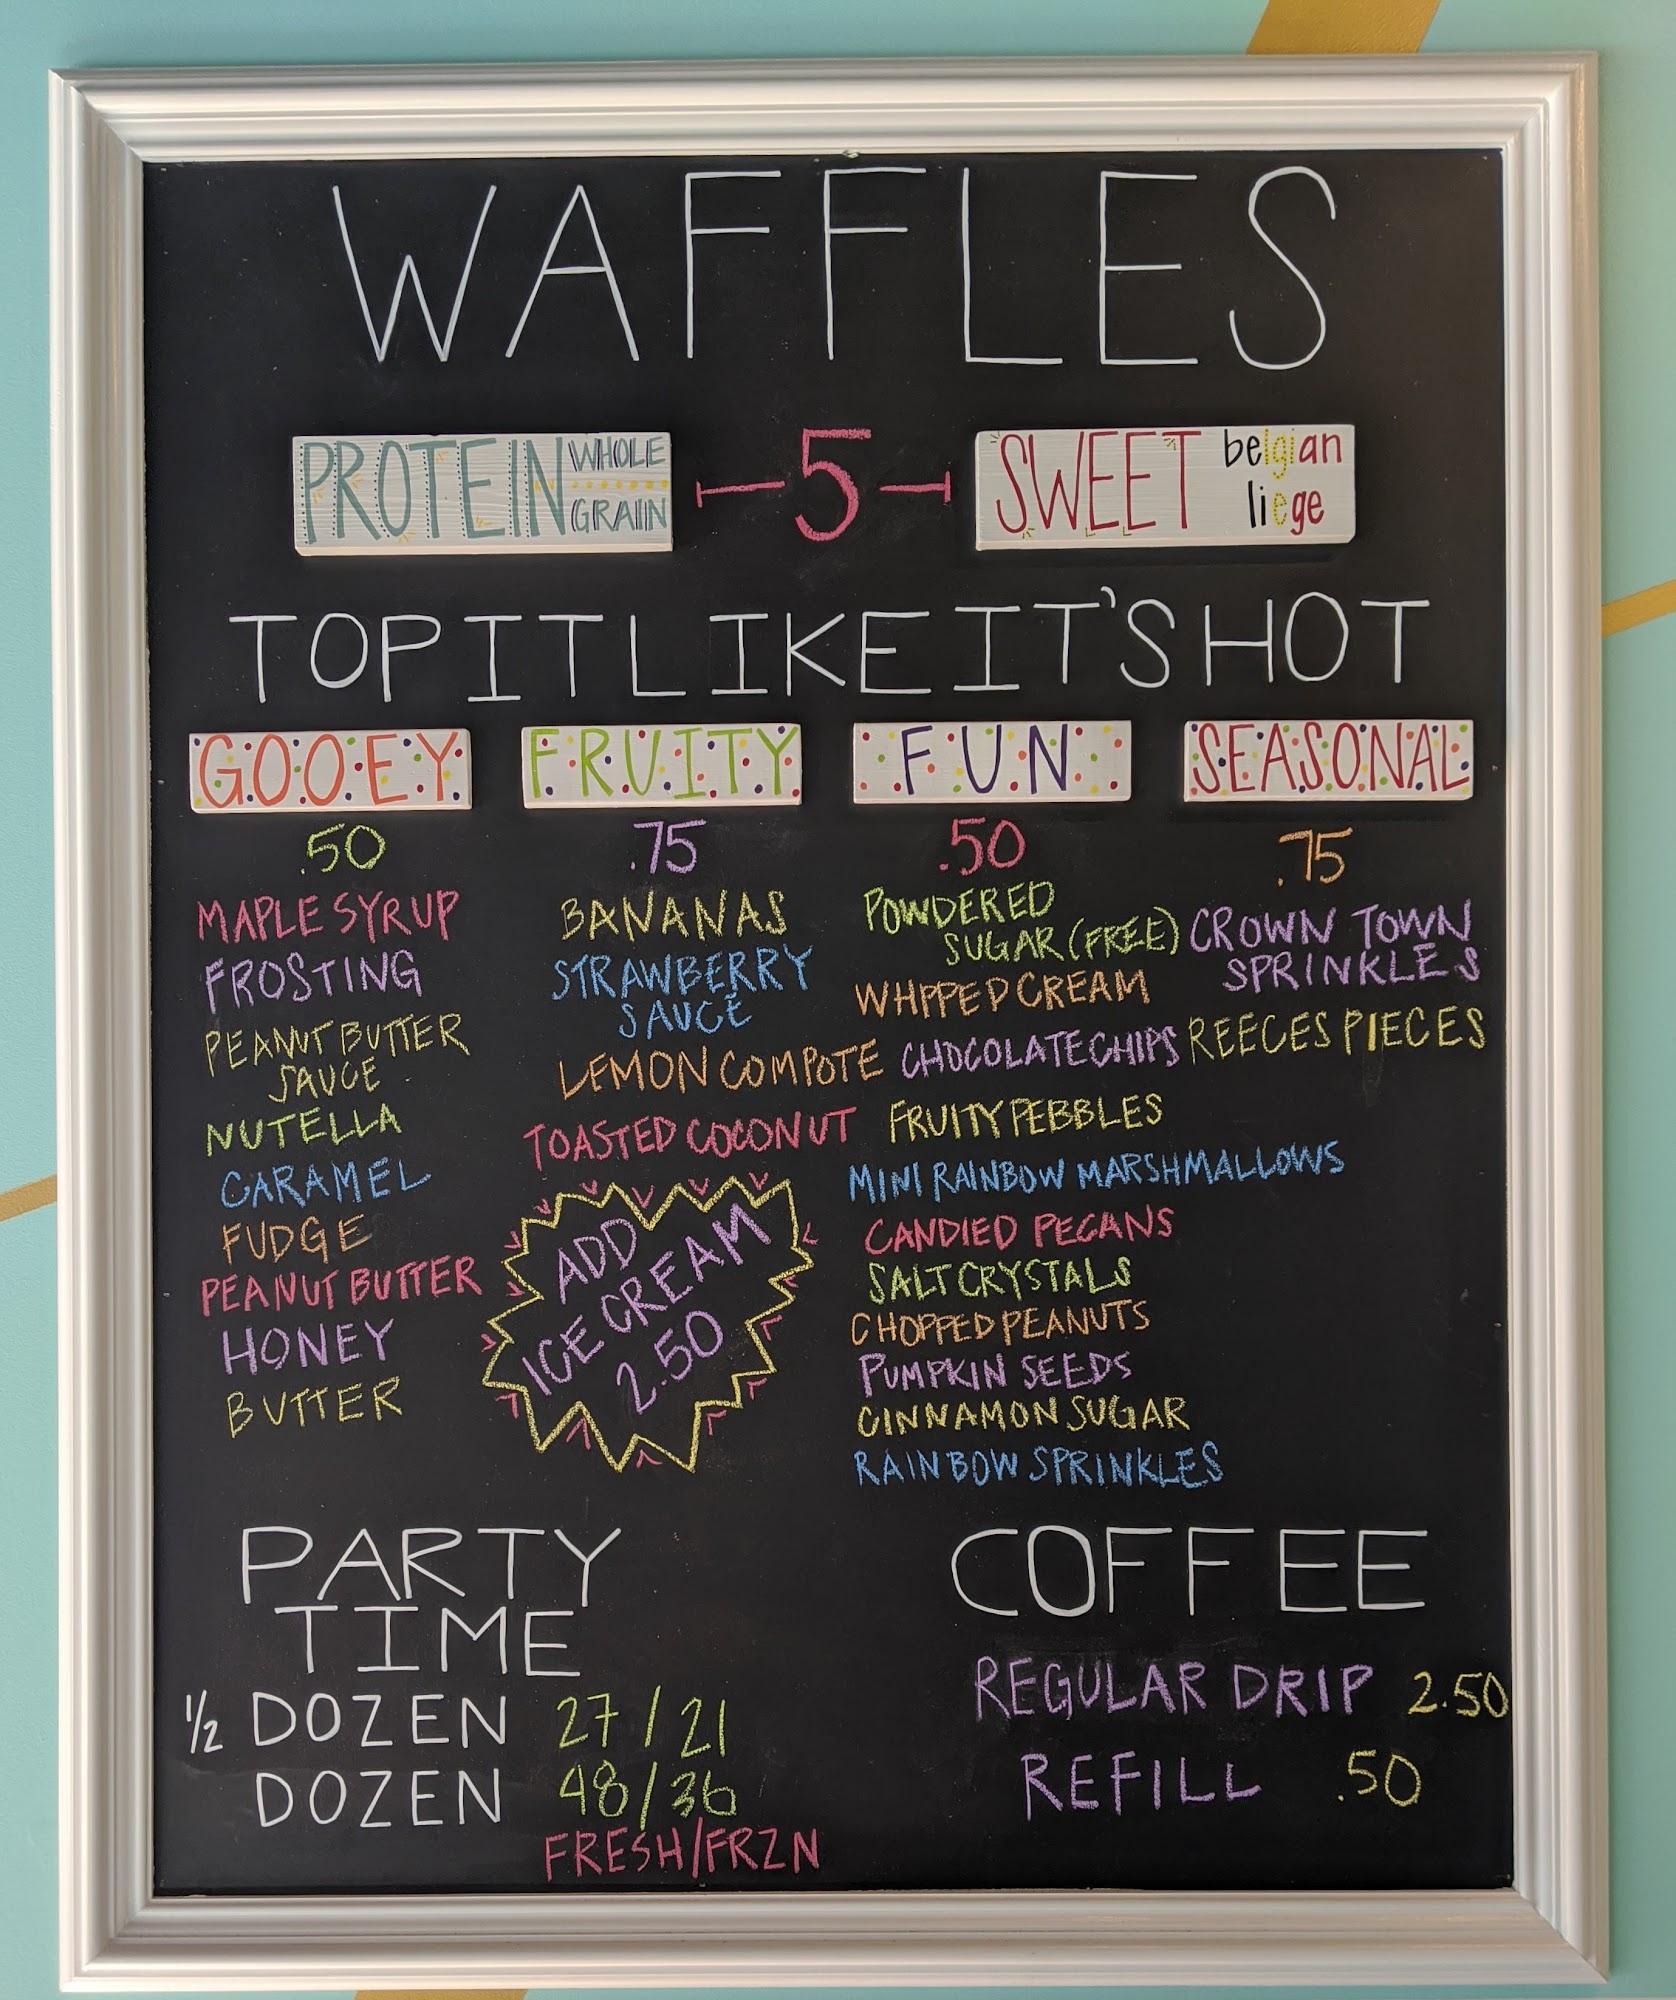 WAFFLES
PROTEIN WHOLE
GRAIN
5
SWEET belgian
liege
TOP IT LIKE IT'S HOT
GOOEY
.50
MAPLE SYRUP
FROSTING
PEANUT BUTTER
SAUCE
NUTELLA
CARAMEL
FUDGE
PEANUT BUTTER
HONEY
BUTTER
FRUITY
.75
BANANAS
STRAWBERRY
SAUCE
LEMON COMPOTE
TOASTED COCONUT
ADD
ICE CREAM
2.50
FUN
.50
POWDERED
SUGAR (FREE)
WHPPED CREAM
CHOCOLATE CHIPS
FRUITY PEBBLES
MINI RAINBOW MARSHMALLOWS
CANDIED PECANS
SALT CRYSTALS
CHOPPED PEANUTS
PUMPKIN SEEDS
CINNAMON SUGAR
RAINBOW SPRINKLES
SEASONAL
.75
CROWN TOWN
SPRINKLES
REECES PIECES
PARTY
TIME
1/2 DOZEN 27/21
DOZEN 48/36
FRESH/FRZN
COFFEE
REGULAR DRIP 2.50
REFILL .50